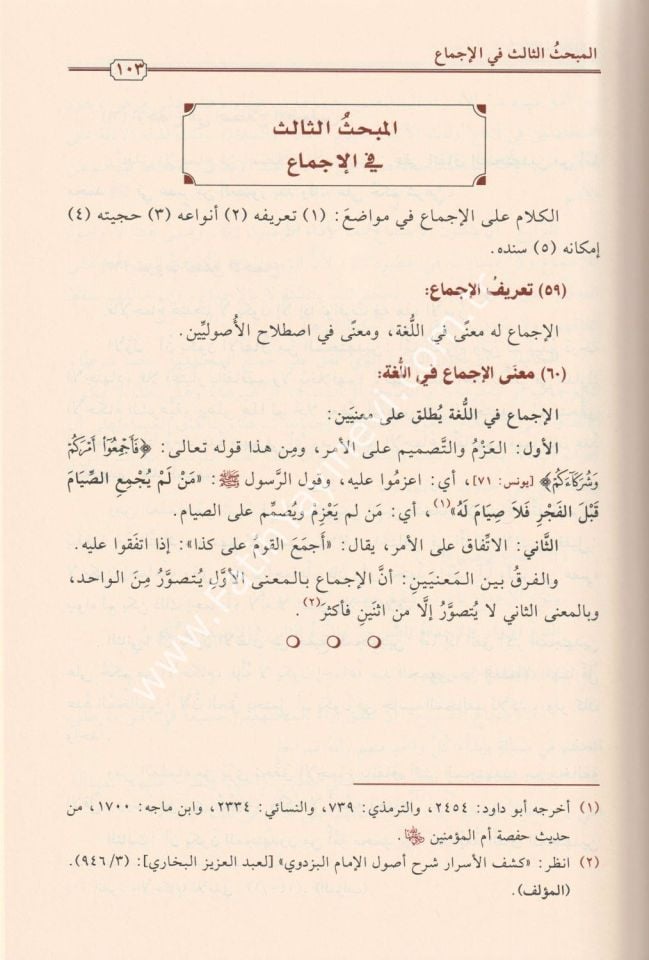 المبحثُ الثالث في الإجماع
١٠٣
المبحثُ الثالث
في الإجماع
الكلام على الإجماع في مواضعَ: (١) تعريفه (٢) أنواعه (٣) حجيته (٤)
إمكانه (٥) سنده.
(٥٩) تعريفُ الإجماع:
الإجماع له معنًى في اللُّغة، ومعنًى في اصطلاح الأُصوليِّين.
(٦٠) معنَى الإجماع في اللُّغة:
الإجماع في اللُّغة يُطلق على معنيَين:
الأول: العَزْمُ والتَّصميم على الأمر، ومِن هذا قوله تعالى: ﴿فَأَجْمِعُوٓا۟ أَمْرَكُمْ
وَشُرَكَآءَكُمْ﴾ [يونس: ٧١]، أي: اعزمُوا عليه، وقول الرَّسول ﷺ: «مَنْ لَمْ يُجْمِعِ الصِّيَامَ
قَبْلَ الفَجْرِ فَلاَ صِيَامَ لَهُ»(١)، أي: مَن لم يَعْزِمْ ويُصمِّم على الصيام.
الثَّاني: الاتِّفاق على الأمر، يقال: «أَجمَعَ القومُ على كذا»: إذا اتفَقوا عليه.
والفرقُ بين المَعنيَين: أنَّ الإجماع بالمعنى الأوَّل يُتصوَّرُ مِنَ الواحد،
وبالمعنى الثاني لا يُتصوَّرُ إلَّا من اثنَينِ فأكثرَ(٢).
(١) أخرجه أبو داود: ٢٤٥٤، والترمذي: ٧٣٩، والنسائي: ٢٣٣٤، وابن ماجه: ١٧٠٠، من
حديث حفصة أم المؤمنين
(٢) انظر: «كشف الأسرار شرح أصول الإمام البزدوي» [لعبد العزيز البخاري]: (٩٤٦/٣).
(المؤلف).